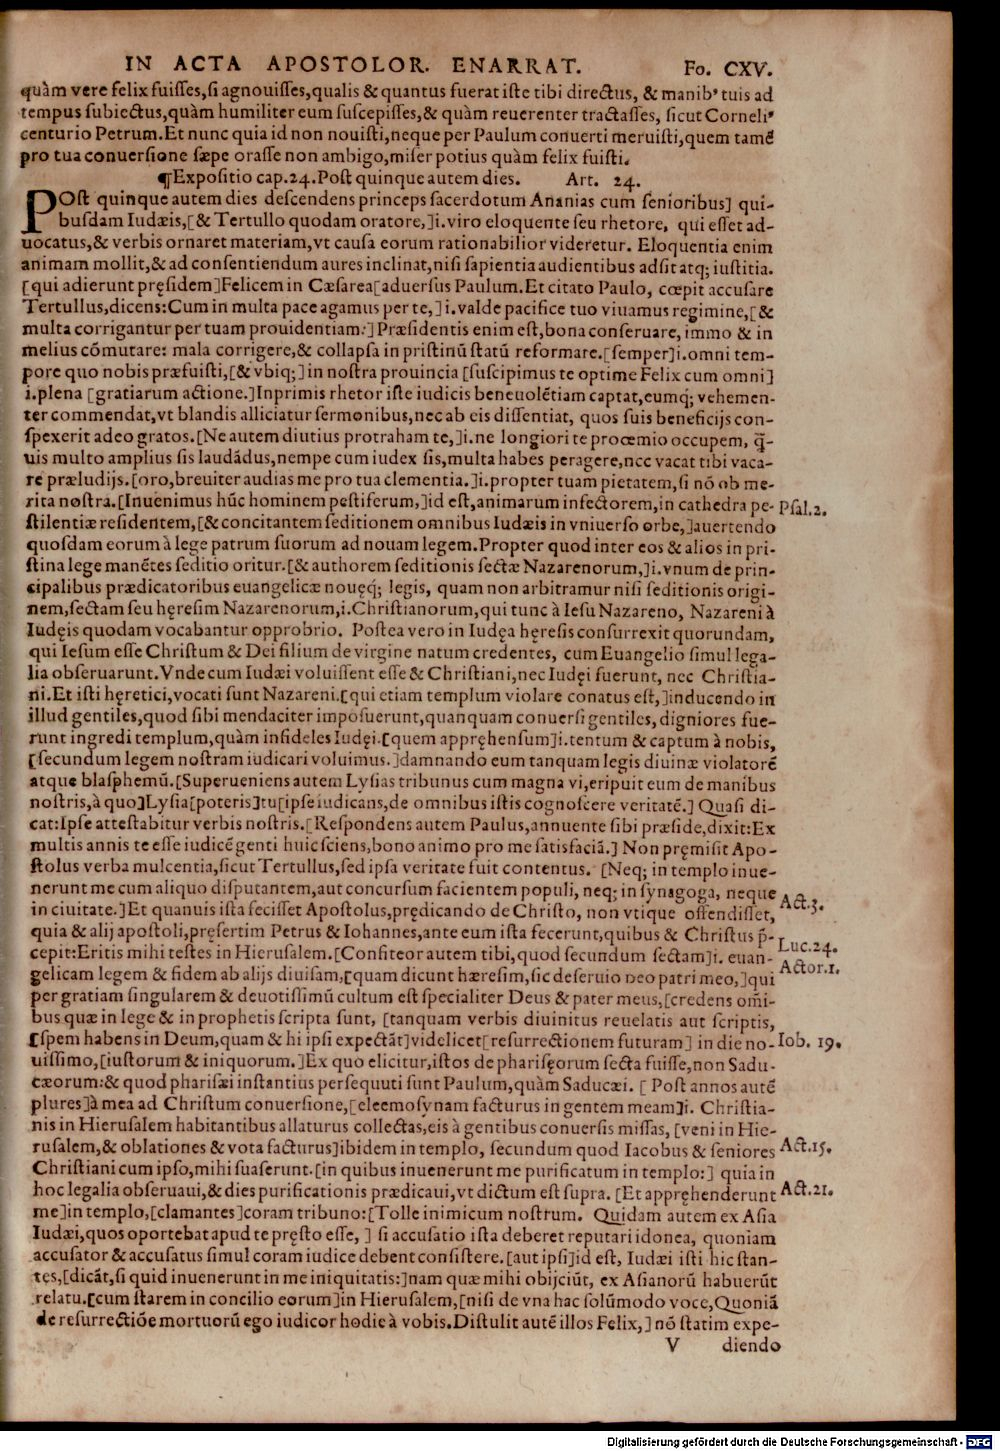 IN ACTA APOSTOLOR. ENARRAT. Fo. CXV.
quàm vere felix fuiſſes,ſi agnouiſſes,qualis & quantus fuerat iſte tibi directus, & manibꝰ tuis ad
tempus ſubiectus,quàm humiliter eum ſuſcepiſſes,& quàm reuerenter tractaſſes, ſicut Corneliꝰ
centurio Petrum.Et nunc quia id non nouiſti,neque per Paulum conuerti meruiſti,quem tamẽ
pro tua conuerſione ſæpe oraſſe non ambigo,miſer potius quàm felix fuiſti.
¶Expoſitio cap.24.Poſt quinque autem dies. Art. 24.
POſt quinque autem dies deſcendens princeps ſacerdotum Ananias cum ſenioribus] qui-
buſdam Iudæis,[& Tertullo quodam oratore,]i.viro eloquente ſeu rhetore, qui eſſet ad-
uocatus,& verbis ornaret materiam,vt cauſa eorum rationabilior videretur. Eloquentia enim
animam mollit,& ad conſentiendum aures inclinat,niſi ſapientia audientibus adſit atq; iuſtitia.
[qui adierunt pręſidem]Felicem in Cæſarea[aduerſus Paulum.Et citato Paulo, cœpit accuſare
Tertullus,dicens:Cum in multa pace agamus per te,]i.valde pacifice tuo viuamus regimine,[&
multa corrigantur per tuam prouidentiam:]Præſidentis enim eſt,bona conſeruare, immo & in
melius cõmutare: mala corrigere,& collapſa in priſtinũ ſtatũ reformare.[ſemper]i.omni tem-
pore quo nobis præfuiſti,[& vbiq;]in noſtra prouincia [ſuſcipimus te optime Felix cum omni]
i.plena [gratiarum actione.]Inprimis rhetor iſte iudicis beneuolẽtiam captat,eumq́; vehemen-
ter commendat,vt blandis alliciatur ſermonibus,nec ab eis diſſentiat, quos ſuis beneficijs con-
ſpexerit adeo gratos.[Ne autem diutius protraham te,]i.ne longiori te proœmio occupem, q̃-
uis multo amplius ſis laudãdus,nempe cum iudex ſis,multa habes peragere,nec vacat tibi vaca-
re præludijs.[oro,breuiter audias me pro tua clementia.]i.propter tuam pietatem,ſi nõ ob me-
rita noſtra.[Inuenimus hũc hominem peſtiferum,]id eſt,animarum infectorem,in cathedra pe-
ſtilentiæ reſidentem,[& concitantem ſeditionem omnibus Iudæis in vniuerſo orbe,]auertendo
quoſdam eorum à lege patrum ſuorum ad nouam legem.Propter quod inter eos & alios in pri-
ſtina lege manẽtes ſeditio oritur.[& authorem ſeditionis ſectæ Nazarenorum,]i.vnum de prin-
cipalibus prædicatoribus euangelicæ nouęq́; legis, quam non arbitramur niſi ſeditionis origi-
nem,ſectam ſeu hęreſim Nazarenorum,i.Chriſtianorum,qui tunc à Ieſu Nazareno, Nazareni à
Iudęis quodam vocabantur opprobrio. Poſtea vero in Iudęa hęreſis conſurrexit quorundam,
qui Ieſum eſſe Chriſtum & Dei filium de virgine natum credentes, cum Euangelio ſimul lega-
lia obſeruarunt.Vnde cum Iudæi voluiſſent eſſe & Chriſtiani,nec Iudęi fuerunt, nec Chriſtia-
ni.Et iſti hęretici,vocati ſunt Nazareni.[qui etiam templum violare conatus eſt,]inducendo in
illud gentiles,quod ſibi mendaciter impoſuerunt,quanquam conuerſi gentiles,digniores fue-
runt ingredi templum,quàm infideles Iudęi.[quem appręhenſum]i.tentum & captum à nobis,
[ſecundum legem noſtram iudicari voluimus.]damnando eum tanquam legis diuinæ violatorẽ
atque blaſphemũ.[Superueniens autem Lyſias tribunus cum magna vi,eripuit eum de manibus
noſtris,à quo]Lyſia[poteris]tu[ipſe iudicans,de omnibus iſtis cognoſcere veritatẽ.] Quaſi di-
cat:Ipſe atteſtabitur verbis noſtris.[Reſpondens autem Paulus,annuente ſibi præſide,dixit:Ex
multis annis te eſſe iudicẽ genti huic ſciens,bono animo pro me ſatisfaciã.] Non pręmiſit Apo-
ſtolus verba mulcentia,ſicut Tertullus,ſed ipſa veritate fuit contentus. [Neq; in templo inue-
nerunt me cum aliquo diſputantem,aut concurſum facientem populi, neq; in ſynagoga, neque
in ciuitate.]Et quanuis iſta feciſſet Apoſtolus,prędicando de Chriſto, non vtique offendiſſet,
quia & alij apoſtoli,pręſertim Petrus & Iohannes,ante eum iſta fecerunt,quibus & Chriſtus p̃-
cepit:Eritis mihi teſtes in Hieruſalem.[Confiteor autem tibi,quod ſecundum ſectam]i. euan-
gelicam legem & fidem ab alijs diuiſam,[quam dicunt hæreſim,ſic deſeruio deo patri meo,]qui
per gratiam ſingularem & deuotiſſimũ cultum eſt ſpecialiter Deus & pater meus,[credens om̃i-
bus quæ in lege & in prophetis ſcripta ſunt, [tanquam verbis diuinitus reuelatis aut ſcriptis,
[ſpem habens in Deum,quam & hi ipſi expectãt]videlicet[reſurrectionem futuram] in die no-
uiſſimo,[iuſtorum & iniquorum.]Ex quo elicitur,iſtos de phariſęorum ſecta fuiſſe,non Sadu-
cæorum:& quod phariſæi inſtantius perſequuti ſunt Paulum,quàm Saducæi. [ Poſt annos autẽ
plures]à mea ad Chriſtum conuerſione,[eleemoſynam facturus in gentem meam]i. Chriſtia-
nis in Hieruſalem habitantibus allaturus collectas,eis à gentibus conuerſis miſſas, [veni in Hie-
ruſalem,& oblationes & vota facturus]ibidem in templo, ſecundum quod Iacobus & ſeniores
Chriſtiani cum ipſo,mihi ſuaſerunt.[in quibus inuenerunt me purificatum in templo:] quia in
hoc legalia obſeruaui,& dies purificationis prædicaui,vt dictum eſt ſupra. [Et appręhenderunt
me]in templo,[clamantes]coram tribuno:[Tolle inimicum noſtrum. Quidam autem ex Aſia
Iudæi,quos oportebat apud te pręſto eſſe, ] ſi accuſatio iſta deberet reputari idonea, quoniam
accuſator & accuſatus ſimul coram iudice debent conſiſtere.[aut ipſi]id eſt, Iudæi iſti hic ſtan-
tes,[dicãt,ſi quid inuenerunt in me iniquitatis:]nam quæ mihi obijciũt, ex Aſianorũ habuerũt
relatu.[cum ſtarem in concilio eorum]in Hieruſalem,[niſi de vna hac ſolũmodo voce,Quoniã
de reſurrectiõe mortuorũ ego iudicor hodie à vobis.Diſtulit autẽ illos Felix,] nõ ſtatim expe-
V diendo
Pſal.2.
Act.3.
Luc.24.
Actor.1.
Iob. 19.
Act.15.
Act.21.
Digitalisierung gefördert durch die Deutsche Forschungsgemeinschaft - DFG